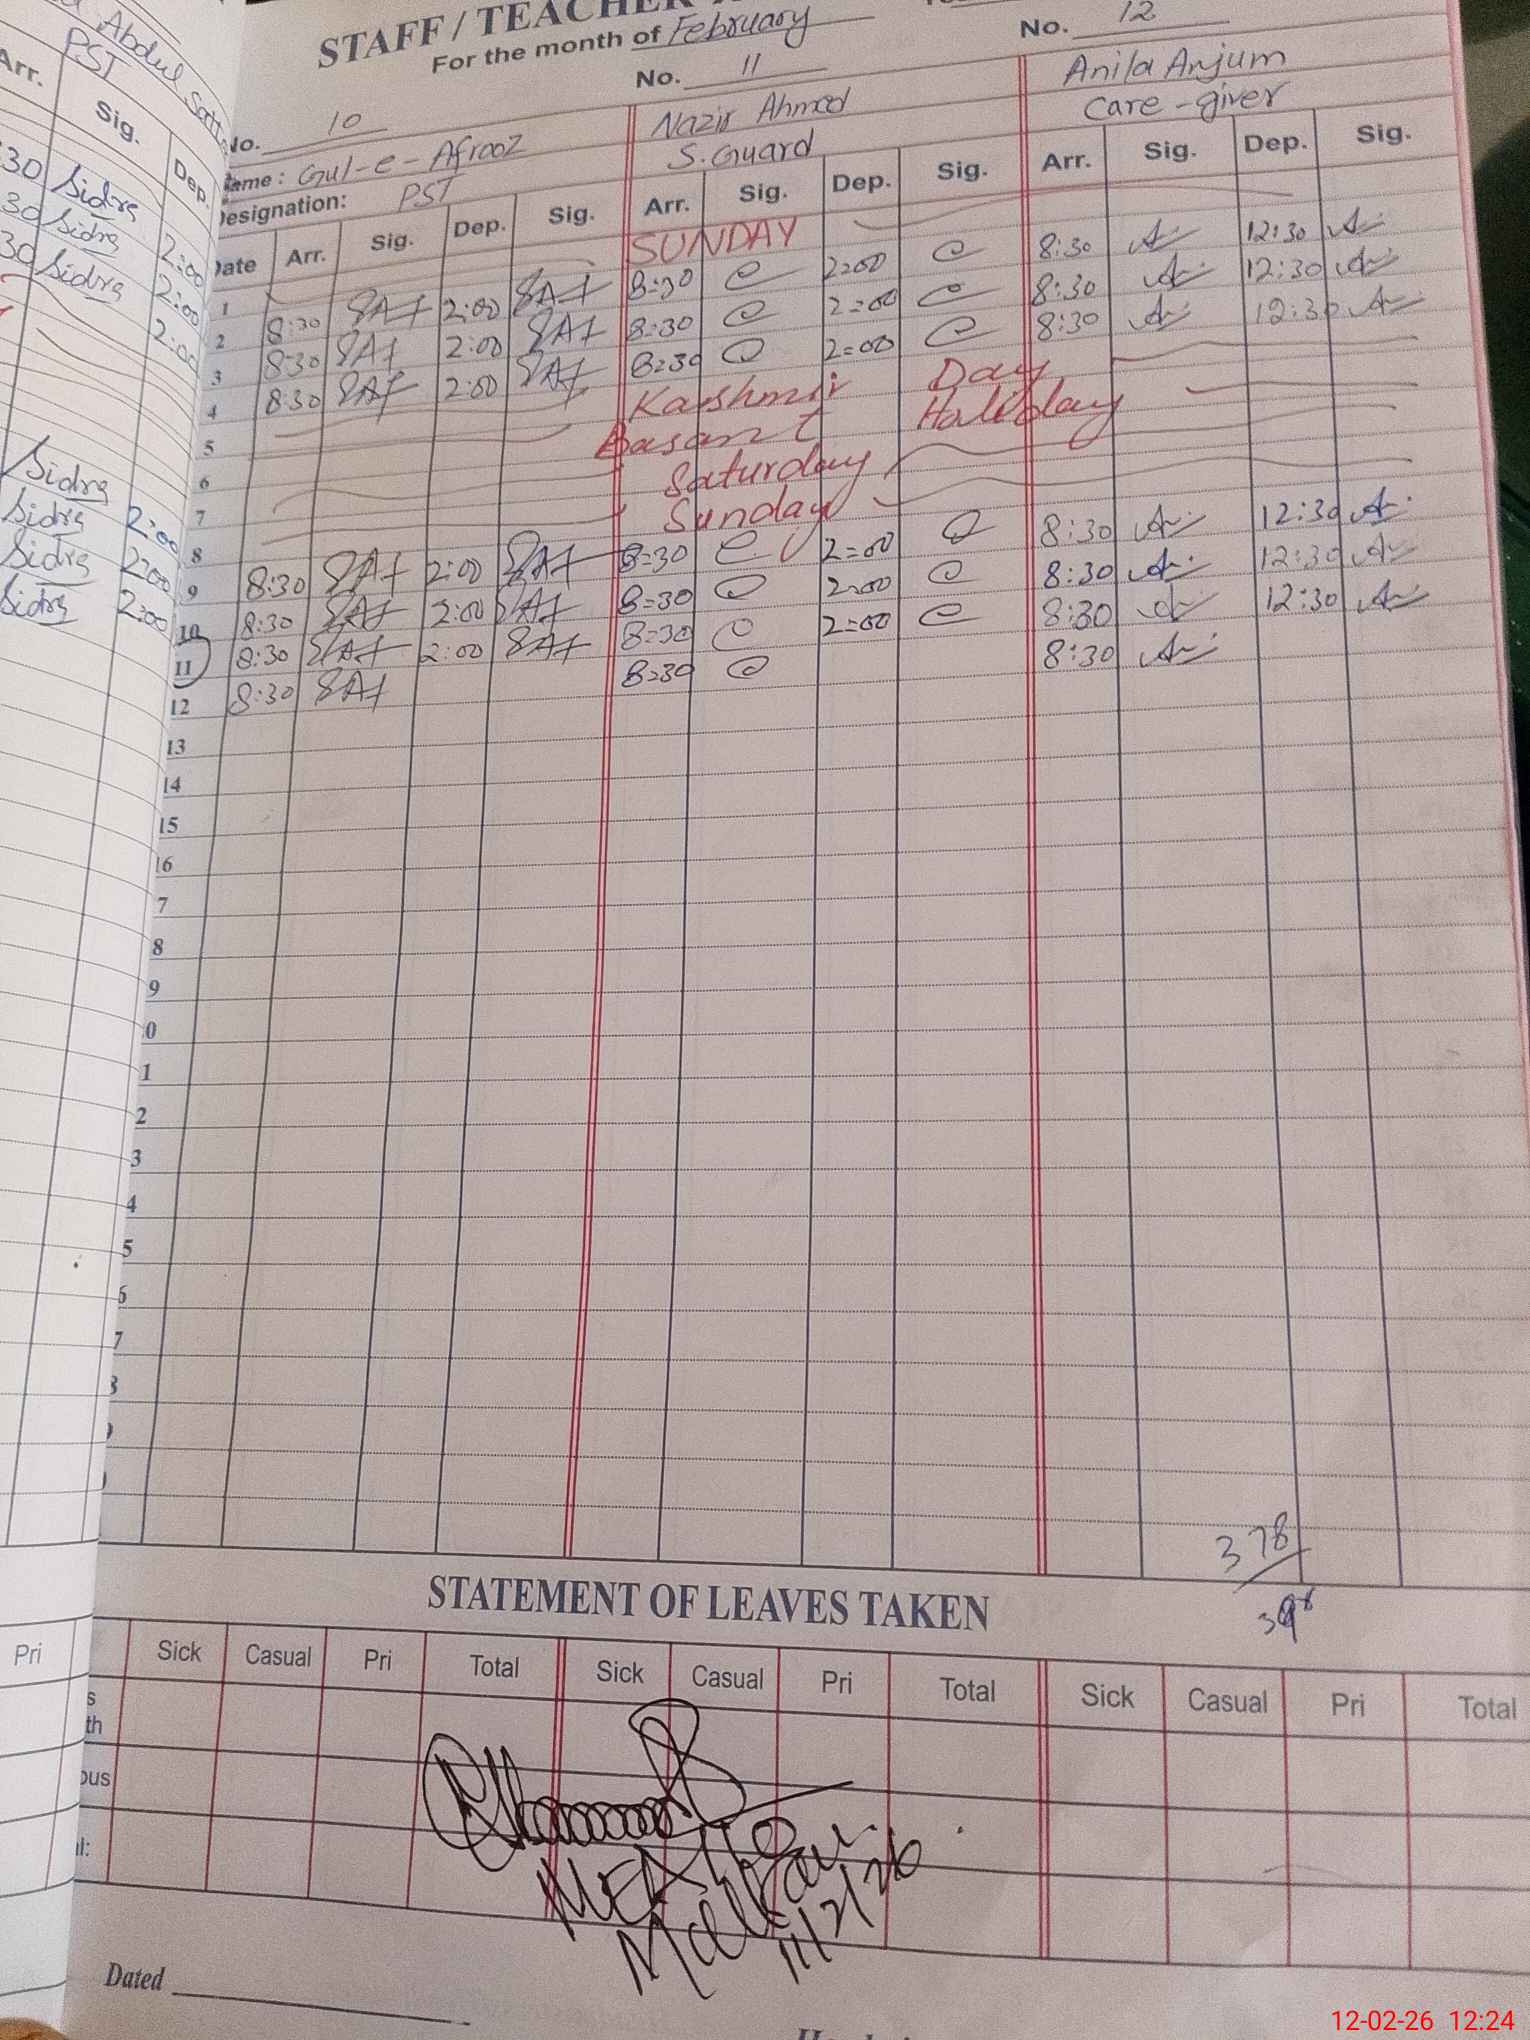 Abdul Satt
PST
Arr. Sig. Dep.
:30 Sidra 2:00
30 Sidra 2:00
30 Sidra 2:00
Sidra 2:00
Sidra 2:00
Sidra 2:00
Sidra
STAFF / TEACHER
For the month of February
No. 10 No. 11 No. 12
Name: Gul-e-Afrooz Nazir Ahmed Anila Anjum
Designation: PST S.Guard Care-giver
Date Arr. Sig. Dep. Sig. Arr. Sig. Dep. Sig. Arr. Sig. Dep. Sig.
1 SUNDAY
2 8:30 2:00 8=30 2=00 8:30 12:30
3 8:30 2:00 8=30 2=00 8:30 12:30
4 8:30 2:00 8=30 2=00 8:30 12:30
5 Kashmir Day
6 Basant Holiday
7 Saturday
8 Sunday
9 8:30 2:00 8=30 2=00 8:30 12:30
10 8:30 2:00 8=30 2=00 8:30 12:30
11 8:30 2:00 8=30 2=00 8:30 12:30
12 8:30 8=30 8:30
13
14
15
16
7
8
9
0
1
2
3
4
5
6
7
8
378
STATEMENT OF LEAVES TAKEN
Pri Sick Casual Pri Total Sick Casual Pri Total Sick Casual Pri Total
s
th
ous
al:
MEA
11/2/26
Dated
12-02-26 12:24